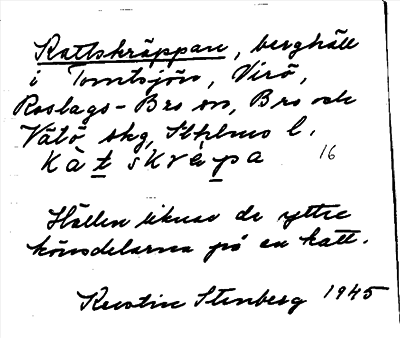 Kattskräppan, berghäll
i Tomtsjön, Virö,
Roslags-Bro sn, Bro och
Vätö skg, Sthlms l.
kàtskrèpa 16
Hällen liknar de yttre
könsdelarna på en katt.
Kerstin Stenberg 1945